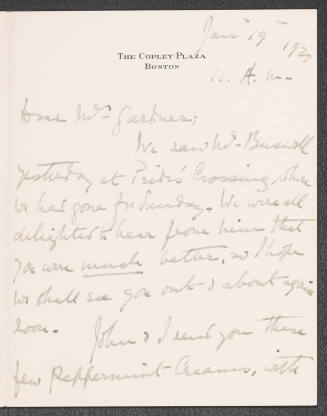 Jan 19th 1920
THE COPLEY-PLAZA
BOSTON
11. A.M.
Dear Mrs Gardner;
We saw Mr. Buswell
yesterday at Pride's Crossing, where
we had gone for Sunday. We were all
delighted to hear from him that
you were much better, so I hope
we shall see you out & about again
soon.
John & I send you these
few Peppermint Creams, with